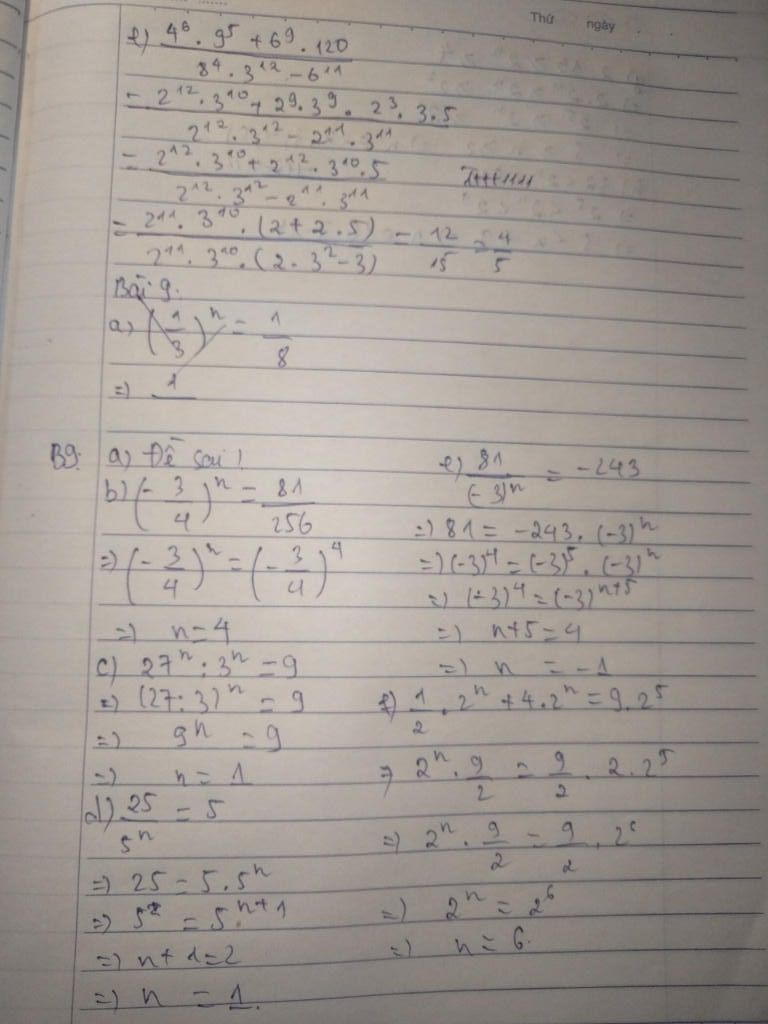 Thứ ngày
e) (4^6 . 9^5 + 6^9 . 120) / (8^4 . 3^12 - 6^11)
= (2^12 . 3^10 + 2^9 . 3^9 . 2^3 . 3 . 5) / (2^12 . 3^12 - 2^11 . 3^11)
= (2^12 . 3^10 + 2^12 . 3^10 . 5) / (2^12 . 3^12 - 2^11 . 3^11)
= (2^11 . 3^10 . (2 + 2 . 5)) / (2^11 . 3^10 . (2 . 3^2 - 3)) = 12/15 = 4/5
Bài 9.
a) (1/3)^n = 1/8
=) 1
B9. a) Đề sai!
b) (- 3/4)^n = 81/256
=) (- 3/4)^n = (- 3/4)^4
=) n = 4
c) 27^n : 3^n = 9
=) (27 : 3)^n = 9
=) 9^n = 9
=) n = 1
d) 25/5^n = 5
=) 25 = 5 . 5^n
=) 5^2 = 5^(n+1)
=) n + 1 = 2
=) n = 1.
e) 81/(-3)^n = -243
=) 81 = -243 . (-3)^n
=) (-3)^4 = (-3)^5 . (-3)^n
=) (-3)^4 = (-3)^(n+5)
=) n + 5 = 4
=) n = -1
f) 1/2 . 2^n + 4 . 2^n = 9 . 2^5
=) 2^n . 9/2 = 9/2 . 2 . 2^5
=) 2^n . 9/2 = 9/2 . 2^6
=) 2^n = 2^6
=) n = 6.